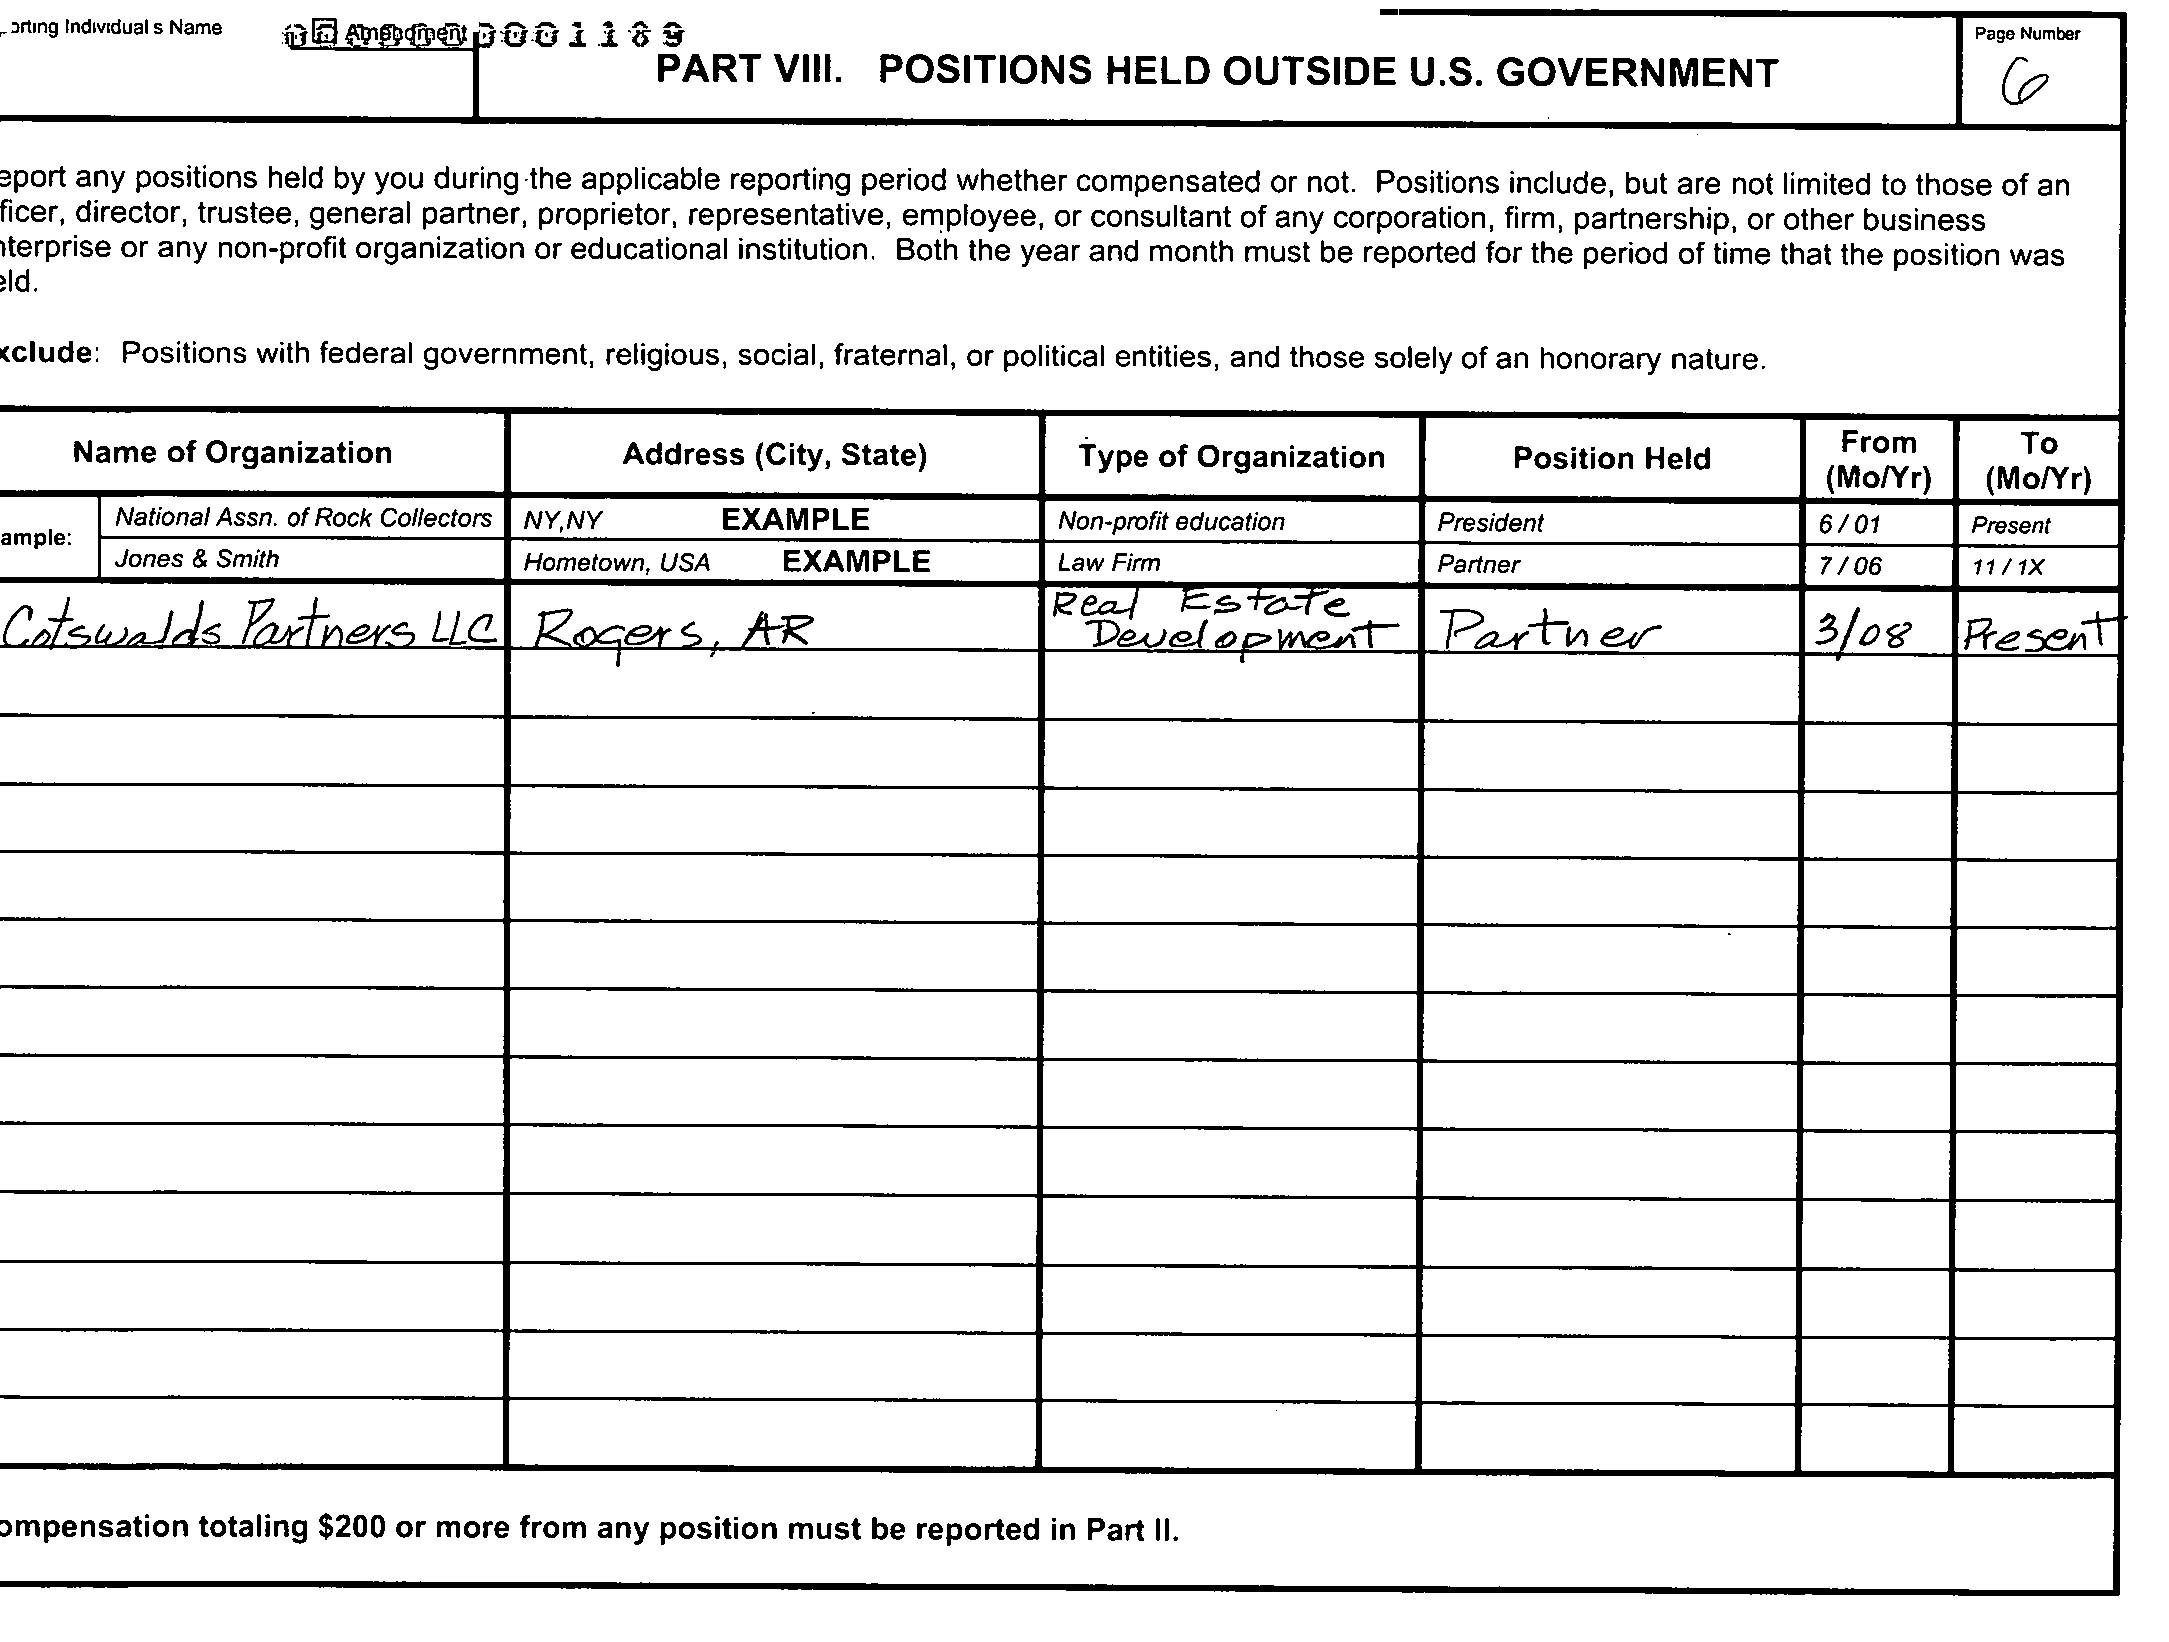 orting Individual s Name
Amendment
0001189
PART VIII. POSITIONS HELD OUTSIDE U.S. GOVERNMENT
Page Number
6
eport any positions held by you during the applicable reporting period whether compensated or not. Positions include, but are not limited to those of an
ficer, director, trustee, general partner, proprietor, representative, employee, or consultant of any corporation, firm, partnership, or other business
nterprise or any non-profit organization or educational institution. Both the year and month must be reported for the period of time that the position was
eld.
xclude: Positions with federal government, religious, social, fraternal, or political entities, and those solely of an honorary nature.
Name of Organization Address (City, State) Type of Organization Position Held From (Mo/Yr) To (Mo/Yr)
ample: National Assn. of Rock Collectors NY,NY EXAMPLE Non-profit education President 6 / 01 Present
Jones & Smith Hometown, USA EXAMPLE Law Firm Partner 7 / 06 11 / 1X
Cotswalds Partners LLC Rogers, AR Real Estate Development Partner 3/08 Present
ompensation totaling $200 or more from any position must be reported in Part II.